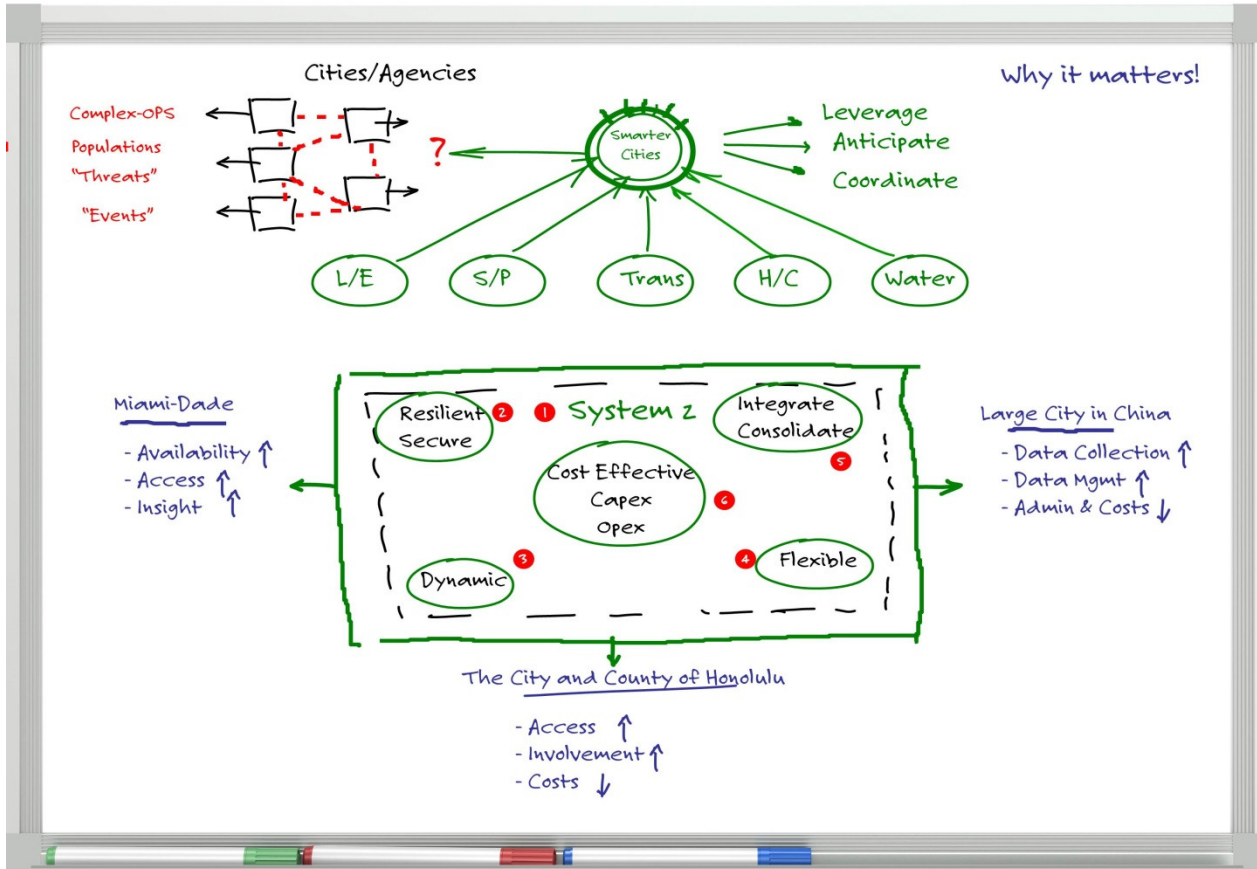 Cities/Agencies
Why it matters!
Complex-OPS
Populations
"Threats"
"Events"
?
Smarter
Cities
Leverage
Anticipate
Coordinate
L/E
S/P
Trans
H/C
Water
Miami-Dade
- Availability ↑
- Access ↑
- Insight ↑
Resilient
Secure
2
1
System z
Integrate
Consolidate
5
Cost Effective
Capex
Opex
6
3
Dynamic
4
Flexible
Large City in China
- Data Collection ↑
- Data Mgmt ↑
- Admin & Costs ↓
The City and County of Honolulu
- Access ↑
- Involvement ↑
- Costs ↓